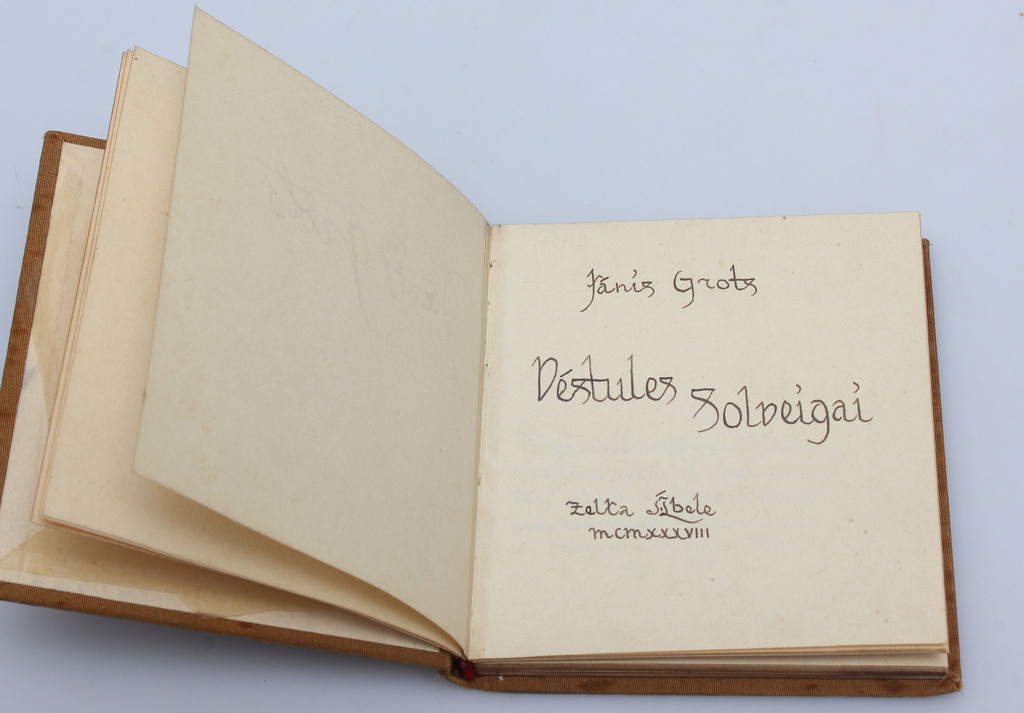 Jānis Grots
Vēstules Solveigai
Zelta Ābele
MCMXXXVIII